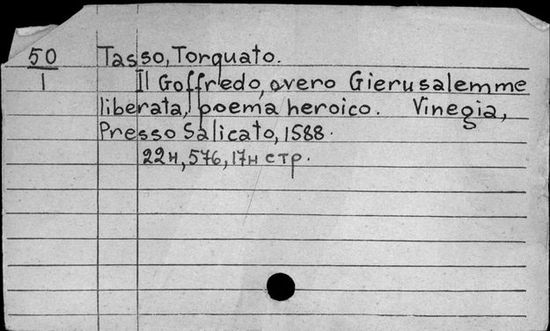 50 Tasso, Torquato.
1 Il Goffredo, overo Gierusalemme
liberata, poema heroico. Vinegia,
Presso Salicato, 1588.
22н, 576, 17н стр.